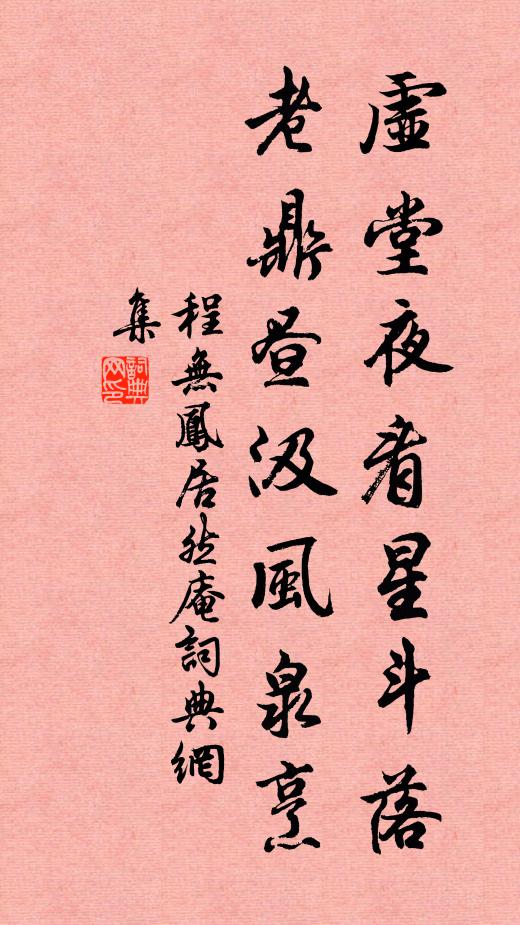 虛堂夜看星斗落
老鼎昼汲風泉烹
程無鳳居然庵詞典網
集
詞典網印